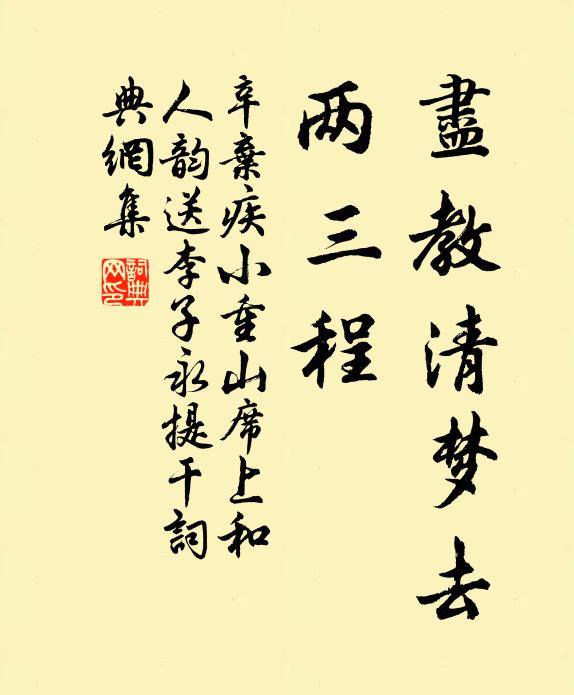 盡教清梦去
两三程
辛棄疾小重山席上和
人韵送李子永提干詞
典網集
詞典网印